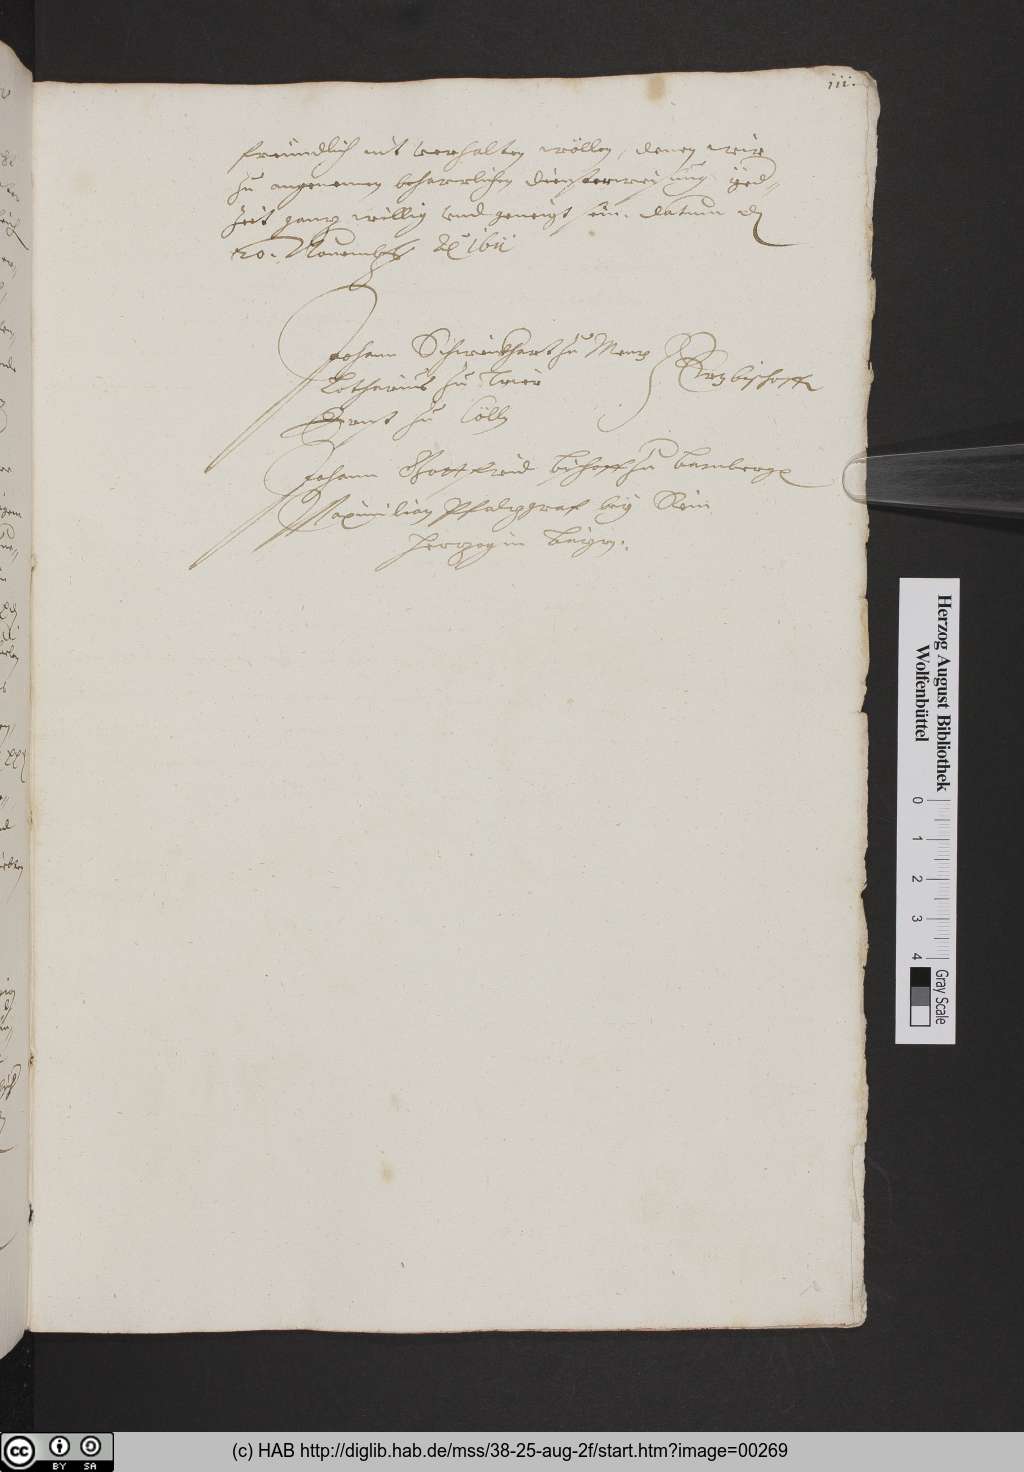 iii.
freündlich nit verhalten wöllen, denen wir
zu angenemen beharrlichen diensterweisung yed„
zeit ganz willig vnd geneigt sein. Datum dẽ
20. Nouembris Aõ 1611
Johann Schweickhart zu Menz
Lotharius zu Trier
Ertzbischoff
Ernst zu Cölln
Johann Gottfrid bischoff zu Bamberg
Maximilian Pfalzgraf bey Rein
Herzog in Bayrn.
Herzog August Bibliothek
Wolfenbüttel
0 1 2 3 4
Gray Scale
cc BY SA
(c) HAB http://diglib.hab.de/mss/38-25-aug-2f/start.htm?image=00269